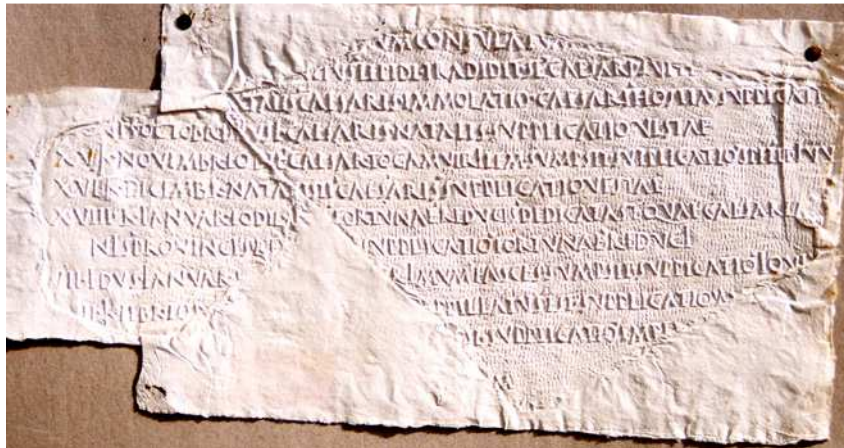 VM CONSVLATVM
LEPIDI TRADIDIT SE CAESARI SVPP
TALIS CAESARIS IMMOLATIO CAESARI HOSTIA SVPPLICATI
IS OCTOBR DRVSI CAESARIS NATALIS SVPPLICATIO VESTAE
NOVEMBR EO DIE CAESAR TOGAM VIRILEM SVMPSIT SVPPLICATIO SPEI ET IVV
XVI K DICEMBR NATALIS TI CAESARIS SVPPLICATIO VESTAE
XVIII K IANVAR EO DIE FORTVNAE REDVCIS DEDICATAST QVAE CAESAREM
NIS PROVINCIS SVPPLICATIO FORTVNAE REDVCI
VII IDVS IANVAR RIMVM FASCES SVMPSIT SVPPLICATIO IOVI
K FEBR EO PPELLATVS EST SVPPLICATIO
SVPPLICATIO IMPE